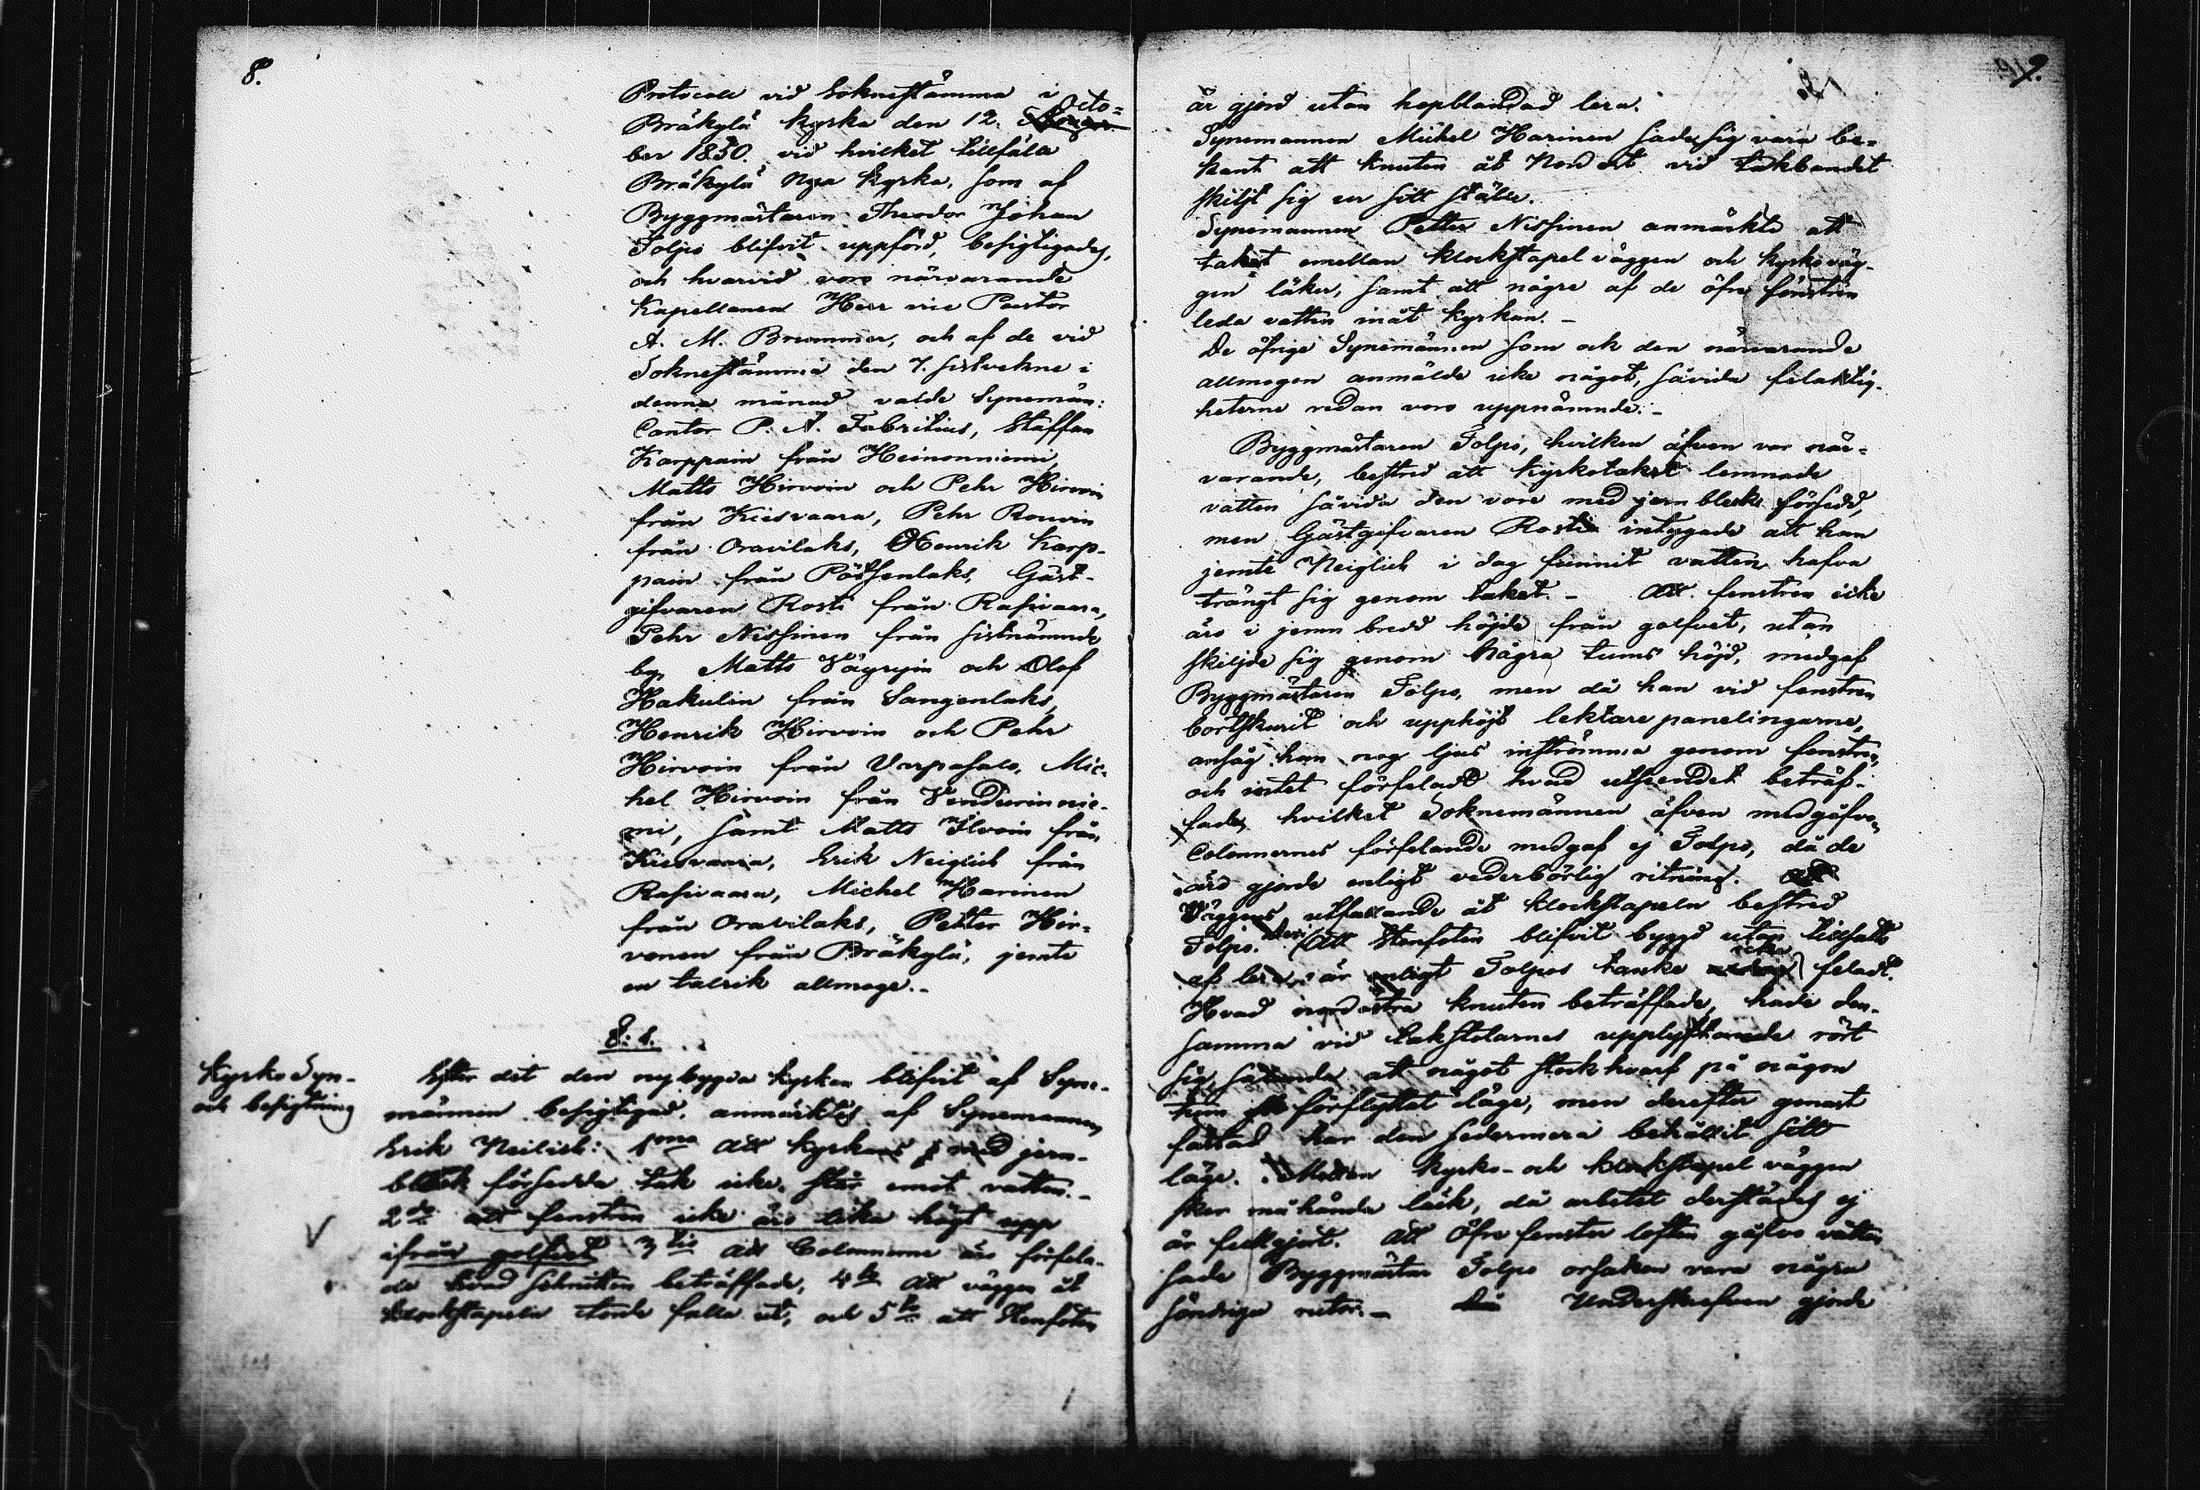 8.
Protocoll vid Sokneståmma i
Bräkylä kyrka den 12. Octo=
ber 1850. vid hvilket tillfälle
Bräkylä Nya kyrka, som af
Byggmästaren Theodor Johan
Tolpo blifvit uppförd, besigtigades,
och hvarvid voro närvarande
Kapellanen Herr vice Pastor
A. M. Brummer, och af de vid
Sokneståmma den 7. sistvekne i
denna månad valde Synemän:
Cantor P. A. Fabritius, Staffan
Karppain från Heinonniemi,
Matts Hirvoin och Pehr Hirvoin
från Kiesvaara, Pehr Rouvin
från Oravilaks, Henrik Karp-
pain från Pötsenlaks, Gäst-
gifvaren Rosti från Rasivaara,
Pehr Nissinen från sistnämnde
by, Matts Väyryin och Olof
Hakulin från Sangenlaks,
Henrik Hirvoin och Pehr
Hirvoin från Varpasalo, Mic-
hel Hirvoin från Vendurinnie-
mi, samt Matts Ilvoin från
Kiesvaara, Erik Neiglick från
Rasivaara, Michel Harinen
från Oravilaks, Petter Hir-
vonen från Bräkylä, jemte
en talrik allmoge.-
§: 1.
Kyrko Syn-
och besigtning
Efter det den nybygda kyrkan blifvit af Syne-
männen besigtigad, anmärktes af Synemannen
Erik Neilick: 1mo att kyrkans med jern-
bleck försedda tak icke står emot vatten.-
2do att fenstren icke äro lika högt upp
ifrån golfvet 3tio att Colonnerne äro förfela-
de hvad beträffade, 4to att väggen åt
klockstapeln torde falla ut, och 5to att stenfoten
9.
är gjord utan hopblandad lera.
Synemannen Michel Harinen sade sig vara be-
kant att knuten åt Nord ost vid takbandet
skiljt sig ur sitt ställe.
Synemannen Petter Nissinen anmärkte att
taket emellan klockstapel väggen och kyrko väg-
gen läker, samt att några af de öfre fönstren
leda vatten inåt kyrkan.-
De öfrige Synemännen som ock den närvarande
allmogen anmälde icke något, såvida felaktig-
heterne redan voro uppnämnde.-
Byggmästaren Tolpo, hvilken äfven var när-
varande, bestred att kyrkotaket lemnade
vatten såvida den vore med jern bleck försedd,
men Gästgifvaren Rosti intygade att han
jemte Neiglick i dag funnit vatten hafva
trängt sig genom taket.- Att fenstren icke
äro i jemn bredd höjde från golfvet, utan
skiljde sig genom några tums höjd, medgaf
Byggmästaren Tolpo, men då han vid fenstren
bortskurit och upphöjt lektare panelingarne,
ansåg han nog ljus inströmma genom fenstren,
och intet förfeladt hvad utseendet beträf-
fade, hvilket Soknemännen äfven medgåfvo,
Colonnernes förfelande medgaf ej Tolpo, då de
äro gjorde enligt vederbörlig ritning.
Väggens utfallande åt klockstapeln bestred
Tolpo. Att Stenfoten blifvit byggd utan tillsatts
af lera, är enligt Tolpos tanke icke feladt.
Hvad nordöstra knuten beträffade, hade den-
samma vid takstolarnes upplyftande rört
sig, att något stockhvarf på någon
tum förflyttat läge, men derefter genast
fästad har den sedermera behållit sitt
läge. Mellan kyrko- och klockstapel väggen
sker måhända läck, då arbetet derstädes ej
är fullgjort. Att öfre fenster loften gåfvo vatten
sade Byggmästar Tolpo orsaken vara några
söndriga rutor.- Underskrefven gjorde